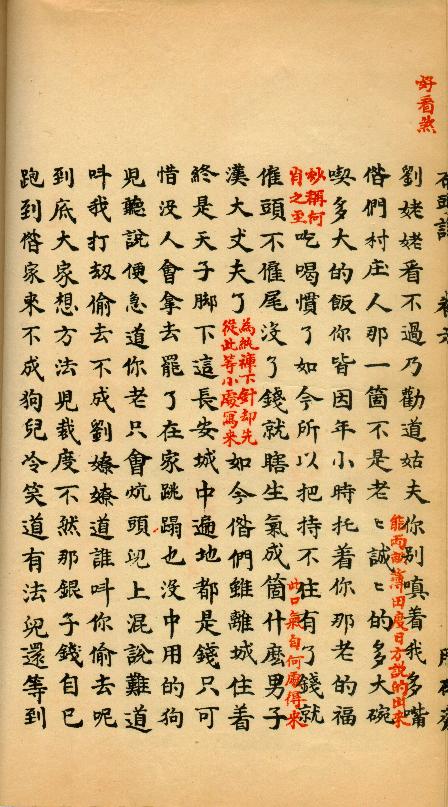 好看煞
劉姥姥看不過乃勸道姑夫你別嗔着我多嘴
偺們村庄人那一箇不是老〻誠〻的多大碗
能兩畝薄田度日方說的出來
喫多大的飯你皆因年小時托着你那老的福
妙稱何
肖之至
吃喝慣了如今所以把持不住有了錢就
僱頭不僱尾沒了錢就瞎生氣成箇什麽男子
此口氣自何處得來
漢大丈夫了
為紈褲下針却先
從此等小處寫來
如今偺們雖離城住着
終是天子脚下這長安城中遍地都是錢只可
惜沒人會拿去罷了在家跳蹋也沒中用的狗
兒聽說便急道你老只會炕頭兒上混說難道
呌我打刼偷去不成劉嫽嫽道誰呌你偷去呢
到底大家想方法兒裁度不然那銀子錢自已
跑到偺家來不成狗兒冷笑道有法兒還等到